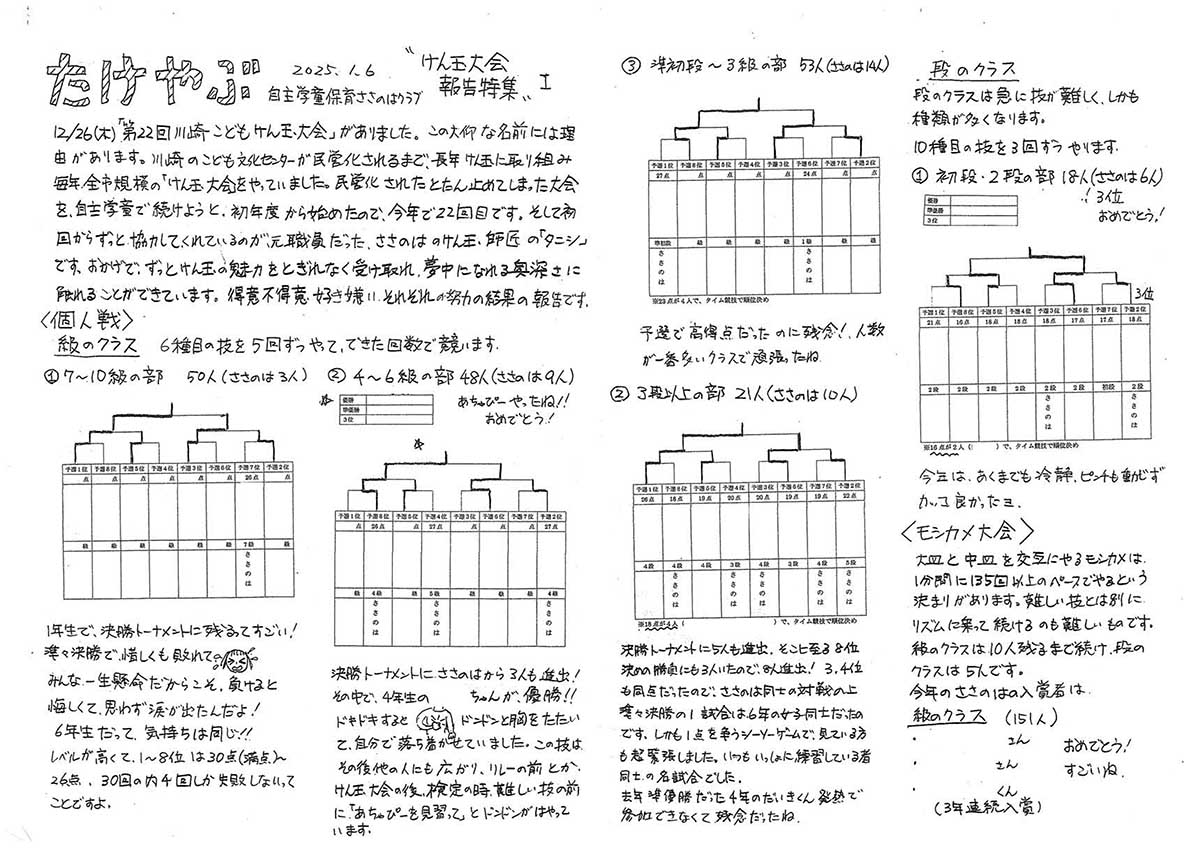 たけやぶ
2025.1.6
自主学童保育ささのはクラブ
〝けん玉大会
報告特集〟I
12/26(木)「第22回川崎こどもけん玉大会」がありました。この大仰な名前には理
由があります。川崎のこども文化センターが民営化されるまで、長年けん玉に取り組み
毎年全市規模の「けん玉大会」をやっていました。民営化されたとたん止めてしまった大会
を、自主学童で続けようと、初年度から始めたので、今年で22回目です。そして初
回からずっと協力してくれているのが、元職員だった、ささのはのけん玉師匠の「タニシ」
です。おかげで、ずっとけん玉の魅力をとぎれなく受け取れ、夢中になれる奥深さに
触れることができています。得意不得意、好き嫌い、それぞれの努力の結果の報告です。
〈個人戦〉
級のクラス 6種目の技を5回ずつやって、できた回数で競います。
①7～10級の部 50人(ささのは3人)
予選1位 予選8位 予選5位 予選4位 予選3位 予選6位 予選7位 予選2位
点 点 点 点 点 点 26点 点
級 級 級 級 級 級 7級 級
ささのは
1年生で、決勝トーナメントに残るってすごい!
準々決勝で、惜しくも敗れて
みんな一生懸命だからこそ、負けると
悔しくて、思わず涙が出たんだよ!
6年生だって、気持ちは同じ!!
レベルが高くて、1～8位は30点(満点)～
26点、30回の内4回しか失敗しないって
ことですよ。
②4～6級の部 48人(ささのは9人)
優勝
準優勝
3位
あちゃぴーやったね!!
おめでとう!
予選1位 予選8位 予選5位 予選4位 予選3位 予選6位 予選7位 予選2位
点 26点 点 27点 点 点 点 27点
級 4級 級 5級 級 級 級 4級
ささのは ささのは ささのは
決勝トーナメントにささのはから3人も進出!
その中で、4年生の ちゃんが、優勝!!
ドキドキすると ドンドンと胸をたたい
て、自分で落ち着かせていました。この技は
その後他の人にも広がり、リレーの前とか、
けん玉大会の後、検定の時、難しい技の前
に「あちゃぴーを見習って」とドンドンがはやって
います。
③準初段～3級の部 53人(ささのは14人)
予選1位 予選8位 予選5位 予選4位 予選3位 予選6位 予選7位 予選2位
27点 点 点 点 点 24点 点 点
準初段 級 級 級 級 1級 級 級
ささのは ささのは
※23点が4人で、タイム競技で順位決め
予選で高得点だったのに残念!、人数
が一番多いクラスで頑張ったね
②3段以上の部 21人(ささのは10人)
予選1位 予選8位 予選5位 予選4位 予選3位 予選6位 予選7位 予選2位
26点 18点 19点 20点 20点 19点 19点 22点
4段 4段 4段 3段 3段 2段 4段 5段
ささのは ささのは ささのは ささのは ささのは
※18点が4人( )で、タイム競技で順位決め
決勝トーナメントに5人も進出、そこに至る8位
決めの勝負にも3人いたので、8人進出!3、4位
も同点だったので、ささのは同士の対戦の上
準々決勝の1試合は6年の女子同士だったの
です。しかも1点を争うシーソーゲームで、見ている方
も超緊張しました。いつもいっしょに練習している者
同士の名試合でした。
去年準優勝だった4年のだいきくん発熱で
参加できなくて残念だったね。
段のクラス
段のクラスは急に技が難しく、しかも
種類が多くなります。
10種目の技を3回ずつやります。
①初段・2段の部 18人(ささのは6人)
優勝
準優勝
3位
!3位
おめでとう!
3位
予選1位 予選8位 予選5位 予選4位 予選3位 予選6位 予選7位 予選2位
21点 16点 18点 18点 18点 17点 17点 18点
2段 2段 2段 2段 2段 2段 初段 2段
ささのは ささのは
※16点が2人( )で、タイム競技で順位決め
今立は、あくまでも冷静、ピンチも動じず
カッコ良かったヨ.
〈モシカメ大会〉
大皿と中皿を交互にやるモシカメは、
1分間に135回以上のペースでやるという
決まりがあります。難しい技とは別に
リズムに乗って続けるのも難しいものです。
級のクラスは10人残るまで続け、段の
クラスは5人です。
今年のささのはの入賞者は
級のクラス (151人)
・ さん
・ さん
・ くん
(3年連続入賞)
おめでとう!
すごいね.